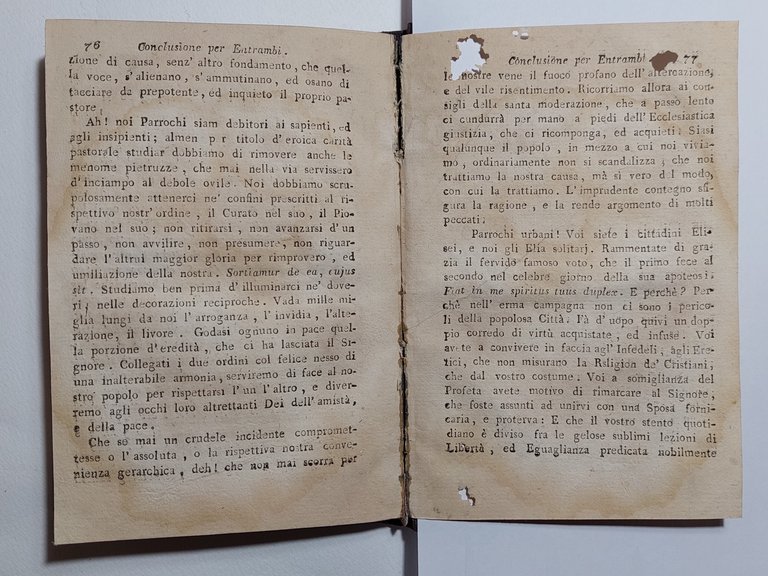 76 Conclusione per Entrambi.
zione di causa, senz' altro fondamento, che quel-
la voce, s' alienano, s' ammutinano, ed osano di
tacciare da prepotente, ed inquieto il proprio pa-
store.
Ah! noi Parrochi siam debitori ai sapienti, ed
agli insipienti; almen p r titolo d' eroica carità
pastorale studiar dobbiamo di rimovere anche le
menome pietruzze, che mai nella via servissero
d' inciampo al debole ovile. Noi dobbiamo scru-
polosamente attenerci ne' confini prescritti al ri-
spettivo nostr' ordine, il Curato nel suo, il Pio-
vano nel suo; non ritirarsi, non avanzarsi d' un
passo, non avvilire, non presumere, non riguar-
dare l' altrui maggior gloria per rimprovero, ed
umiliazione della nostra. Sortiamur de ea, cujus
sit. Studiamo ben prima d' illuminarci ne' dove-
ri; nelle decorazioni reciproche. Vada mille mi-
glia lungi da noi l' arroganza, l' invidia, l' alte-
razione, il livore. Godasi ognuno in pace quel-
la porzione d' eredità, che ci ha lasciata il Si-
gnore. Collegati i due ordini col felice nesso di
una inalterabile armonia, serviremo di face al no-
stro popolo per rispettarsi l' un l' altro, e diver-
remo agli occhi loro altrettanti Dei dell' amistà,
e della pace.
Che se mai un crudele incidente compromet-
tesse o l' assoluta, o la rispettiva nostra conve-
nienza gerarchica, deh! che non mai scorra per
Conclusione per Entrambi 77
le nostre vene il fuoco profano dell' altercazione,
e del vile risentimento. Ricorriamo allora ai con-
sigli della santa moderazione, che a passo lento
ci cundurrà per mano a' piedi dell' Ecclesiastica
giustizia, che ci ricomponga, ed acquieti. Siasi
qualunque il popolo, in mezzo a cui noi vivia-
mo, ordinariamente non si scandalizza; che noi
trattiamo la nostra causa, mà sì vero del modo,
con cui la trattiamo. L' imprudente contegno sfi-
gura la ragione, e la rende argomento di molti
peccati.
Parrochi urbani! Voi siete i cittadini Eli-
sei, e noi gli Elia solitarj. Rammentate di gra-
zia il fervido famoso voto, che il primo fece al
secondo nel celebre giorno della sua apoteosi.
Fiat in me spiritus tuus duplex. E perchè? Per-
chè nell' erma campagna non ci sono i perico-
li della popolosa Città. Fà d' uopo quivi un dop-
pio corredo di virtù acquistate, ed infuse. Voi
avete a convivere in faccia agl' Infedeli, agli Ere-
tici, che non misurano la Religion de' Cristiani,
che dal vostro costume. Voi a somiglianza del
Profeta avete motivo di rimarcar al Signore,
che foste assunti ad unirvi con una Sposa forni-
caria, e proterva: E che il vostro stento quoti-
diano è diviso fra le gelose sublimi lezioni di
Libertà, ed Eguaglianza predicata nobilmente